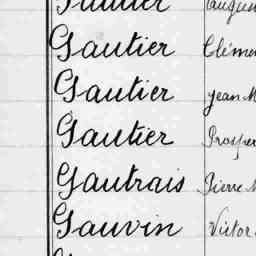 Gautier Clémen
Gautier Jean M
Gautier Prosper
Gautrais Pierre M
Gauvin Victor